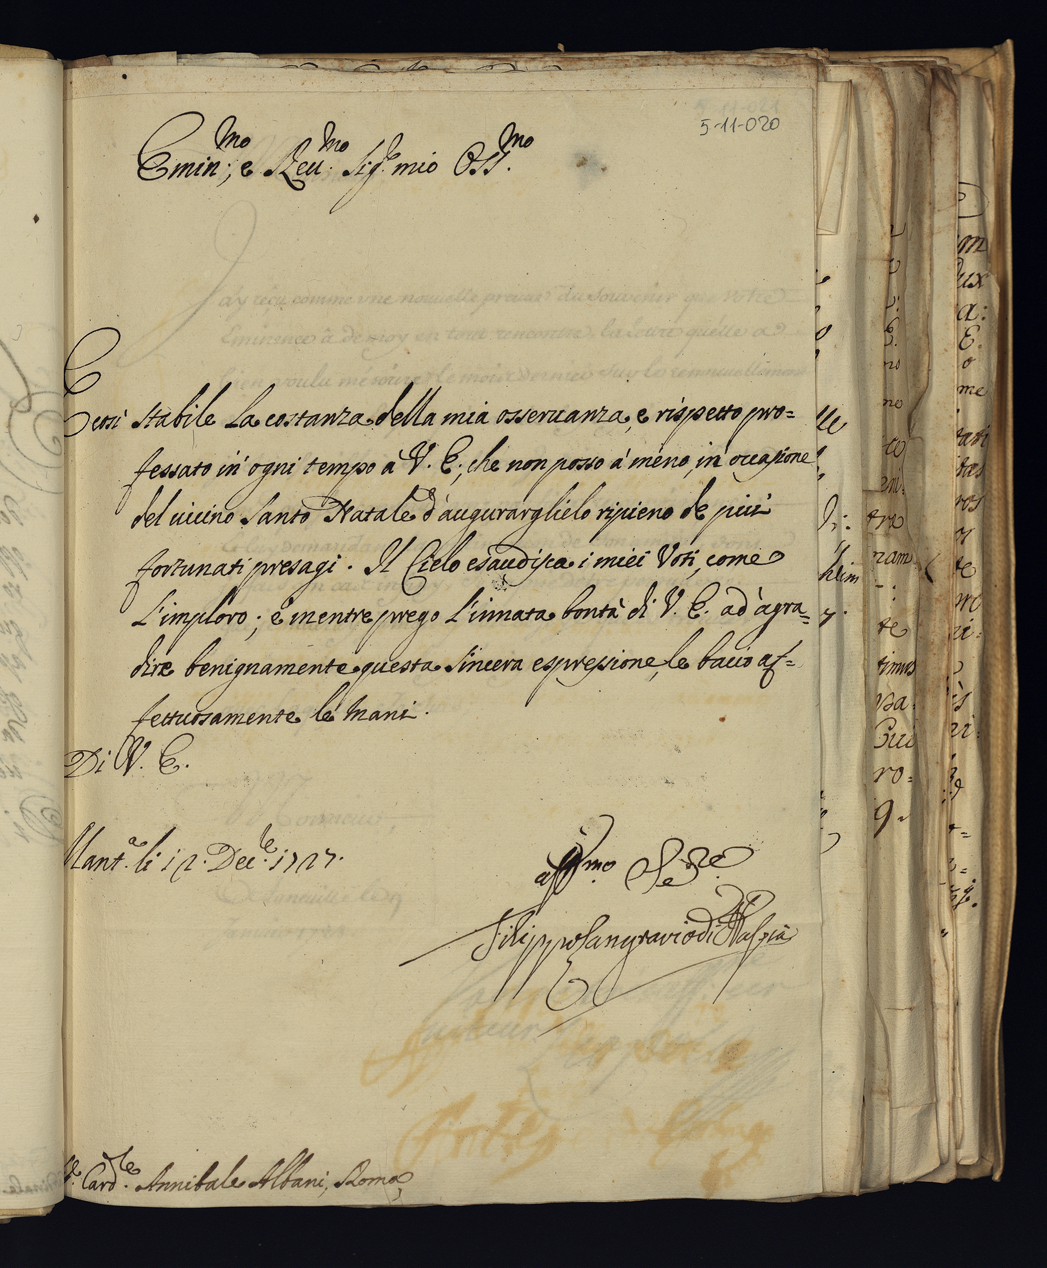 5-11-020
Emin:mo, e Reu:mo Sig.r mio Oss.mo
È così stabile la costanza della mia osseruanza, e rispetto pro=
fessato in ogni tempo à V. E., che non posso à meno, in occasione
del uicino Santo Natale d'augurarglielo ripieno de più
fortunati presagi. Il Cielo esaudisca i miei Voti, come
l'imploro; e mentre prego l'innata bontà di V. E. ad agra=
dire benignamente questa sincera espressione, le bacio af=
fettuosamente le mani.
Di V. E.
Mant.a li 12. Dec.le 1727.
aff.mo Se.re
Filippo Langravio di Hassia
Card.le Annibale Albani, Roma